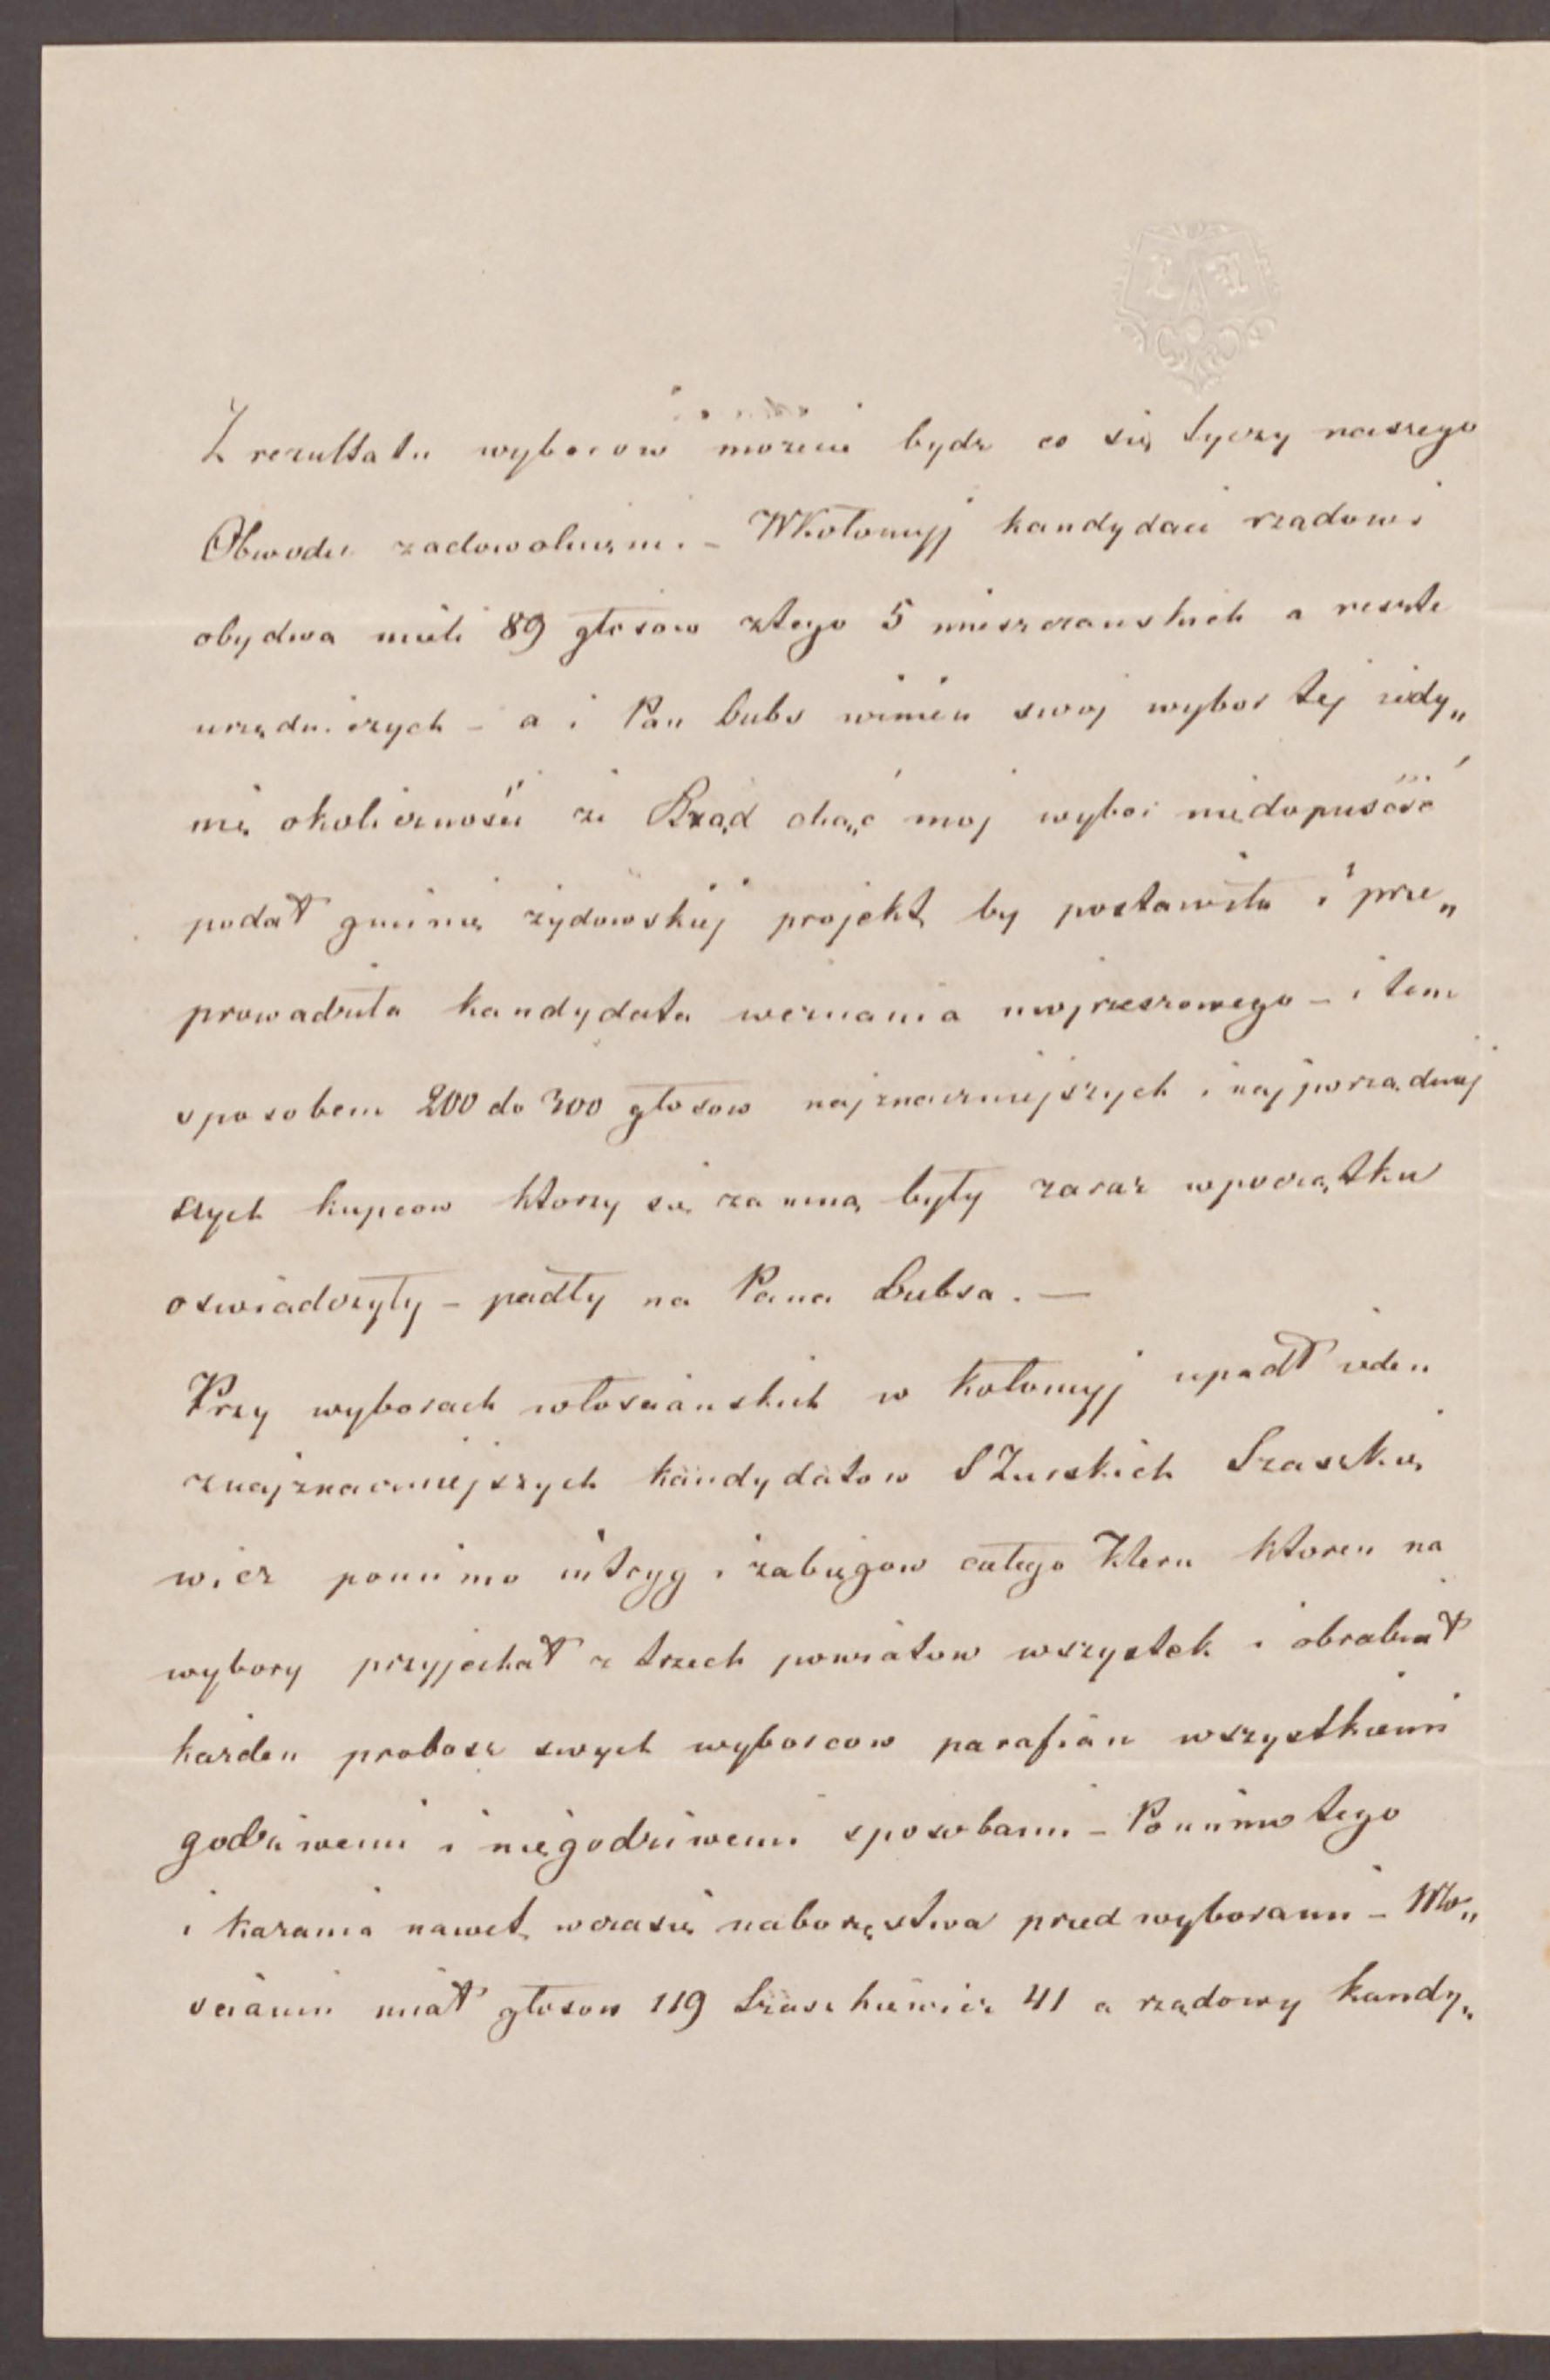 Z rezultatu wyborow możecie bydz co się tyczy naszego
Obwodu zadowolnięni. – WKołomyjj kandydaci rządowi
obydwa mieli 89 głosow ztego 5 mieszczanskich a resztę
urzędniczych – a i Pan Dubs winien swoj wybor tej iedy„
nię okoliczności że Rząd chcąć moj wybor niedopuścić
podał gminię żydowskiej projekt by postawiła i prze„
prowadziła kandydata wyznania mojżeszowego – i tem
sposobem 200 do 300 głosow najznaczniejszych i najporządniej
szych kupcow ktorzy się za mną były zaraz wpocrątku
oswiadczyły – padły na Pana Dubsa. —
Przy wyborach włosciańskich w Kołomyjj upadł ieden
znajznaczniejszych kandydatow SJurskich Szaszkie
wicz pomimo intryg i zabiegow całego Kleru ktoren na
wybory przyjechał z trzech powiatow wszystek i obrabiał
każden probosz swych wyborcow parafian wszystkiemi
godziwemi i niegodziwemi sposobami – Pomimo tego
i kazania nawet wczasie nabożęstwa przed wyborami – Wło„
scianin miał głosow 119 Szaszkiewicz 41 a rządowy kandy„